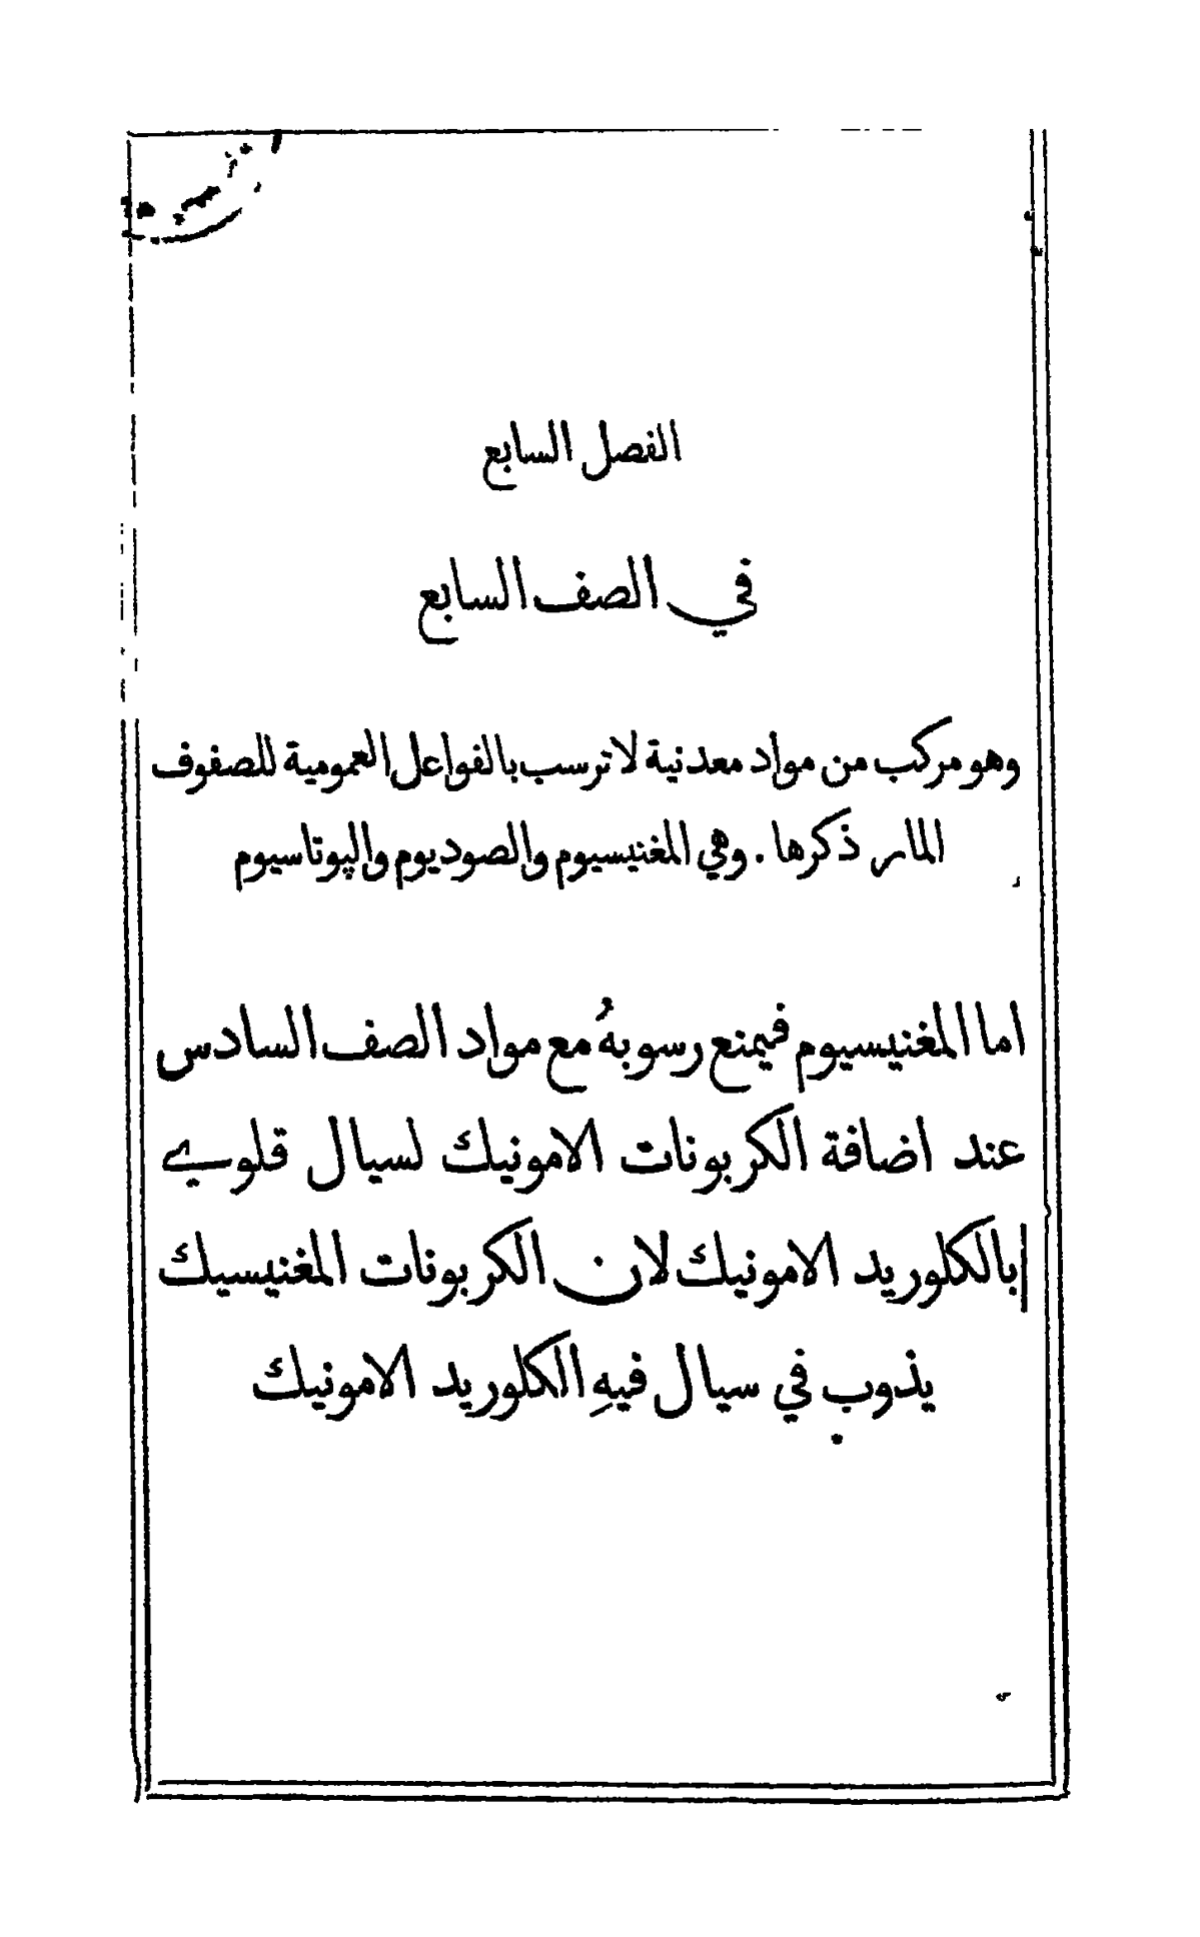 الفصل السابع
في الصف السابع
وهو مركب من مواد معدنية لا ترسب بالفواعل العمومية للصفوف
المار ذكرها . وهي المغنيسيوم والصوديوم والپوتاسيوم
اما المغنيسيوم فيمنع رسوبهُ مع مواد الصف السادس
عند اضافة الكربونات الامونيك لسيال قلوي
بالكلوريد الامونيك لان الكربونات المغنيسيك
يذوب في سيال فيهِ الكلوريد الامونيك